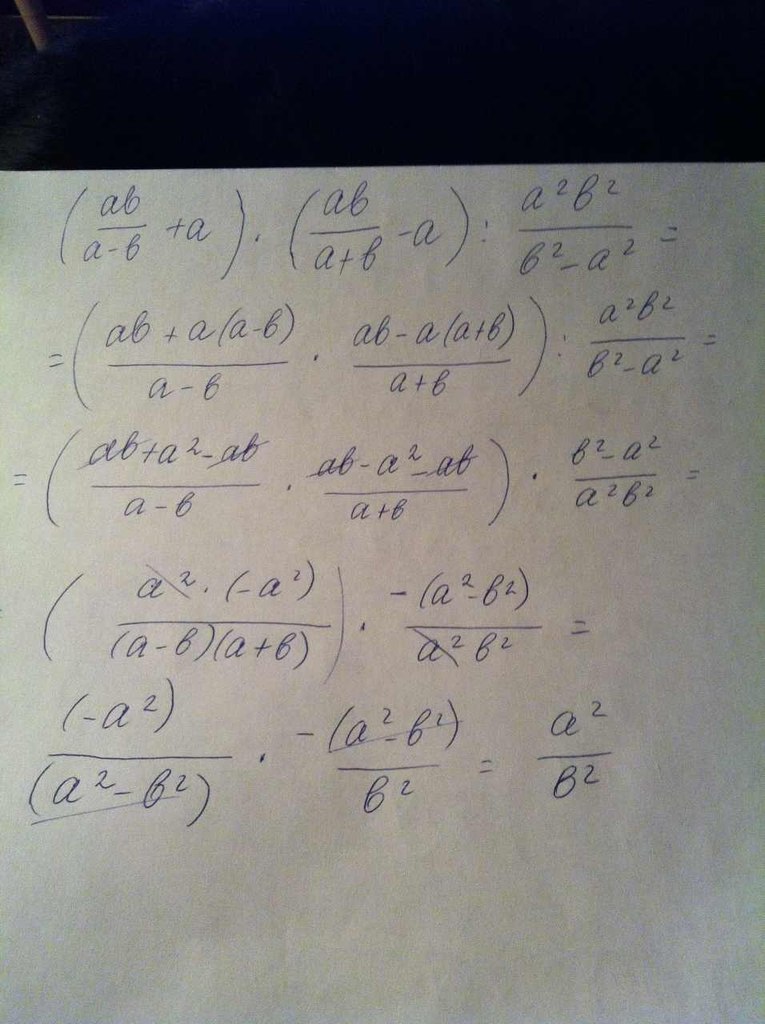 (ab/(a-b) + a) · (ab/(a+b) - a) : a²b²/(b²-a²) =
= ((ab + a(a-b))/(a-b) · (ab - a(a+b))/(a+b)) : a²b²/(b²-a²) =
= ((ab+a²-ab)/(a-b) · (ab-a²-ab)/(a+b)) · (b²-a²)/(a²b²) =
(a²·(-a²)/((a-b)(a+b))) · -(a²-b²)/(a²b²) =
(-a²)/(a²-b²) · -(a²-b²)/b² = a²/b²